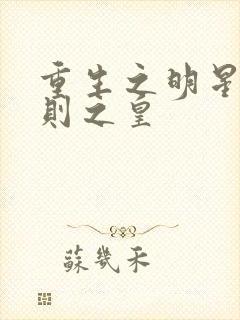 重生之明星
則之皇
蘇幾禾